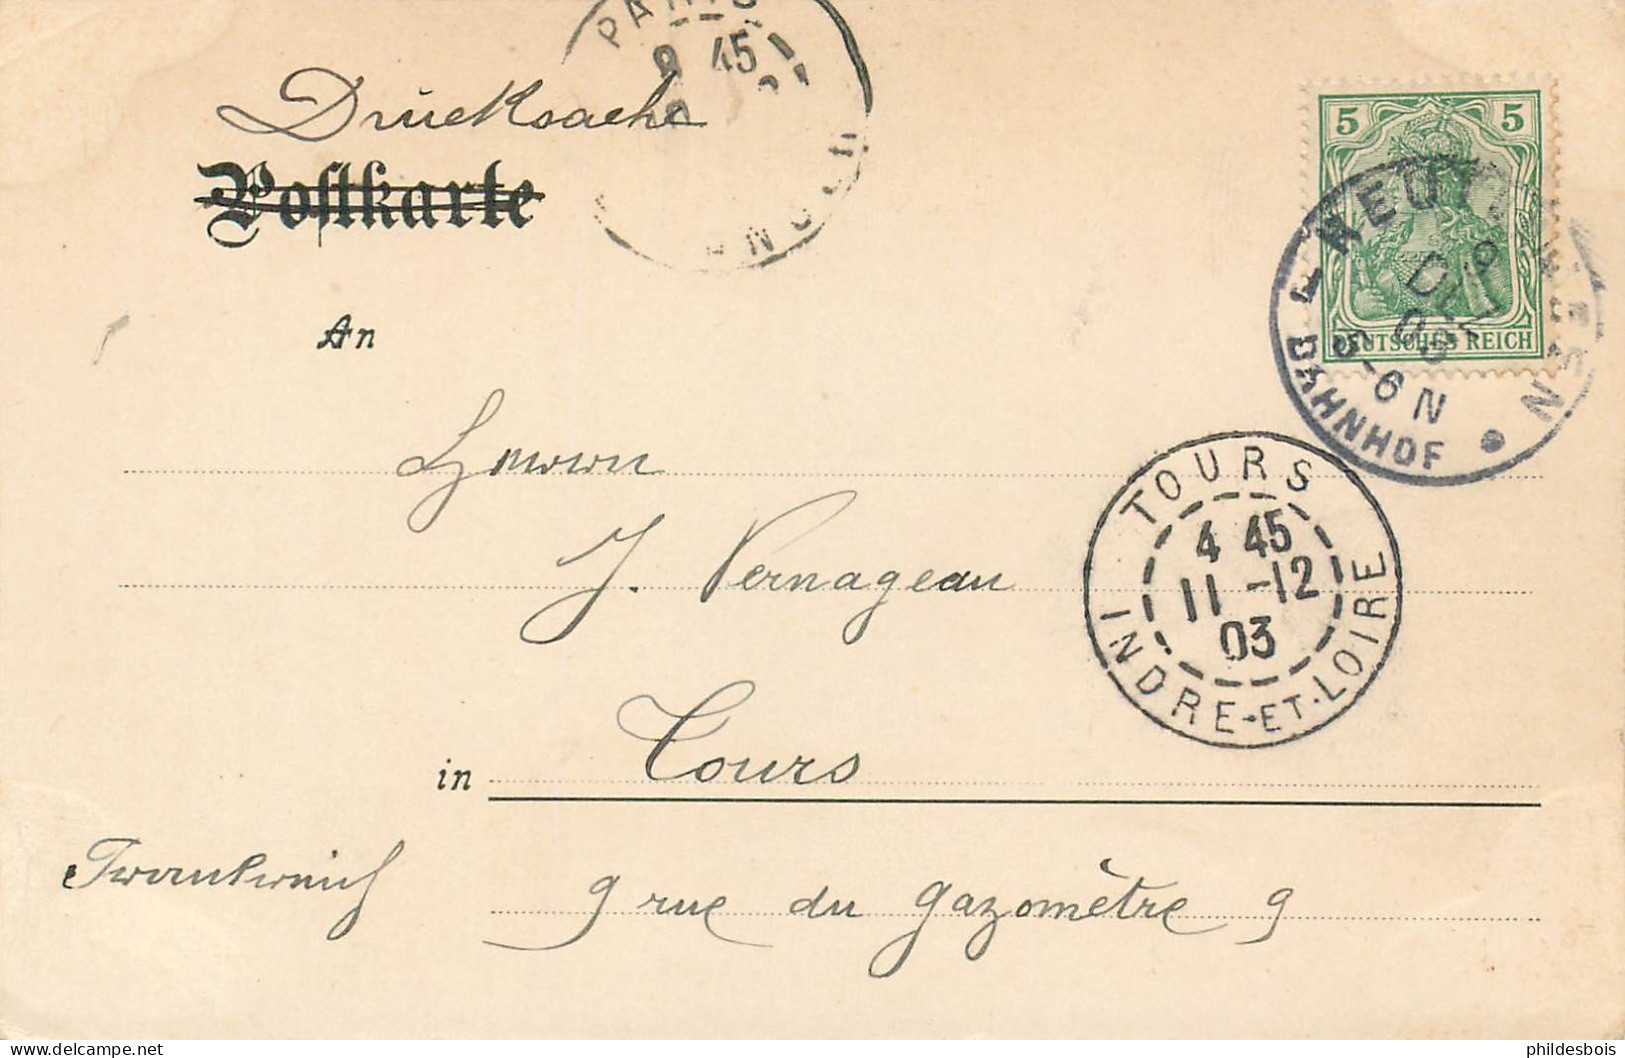 PARIS
8 45
Drucksache
Postkarte
5 5
DEUTSCHES REICH
BAHNHOF
5-6 N
DEZ
03
An
Herrn
J. Vernageau
TOURS
4 45
11 -12
03
INDRE-ET-LOIRE
in Tours
Frankreich
9 rue du gazomètre 9
phildesbois